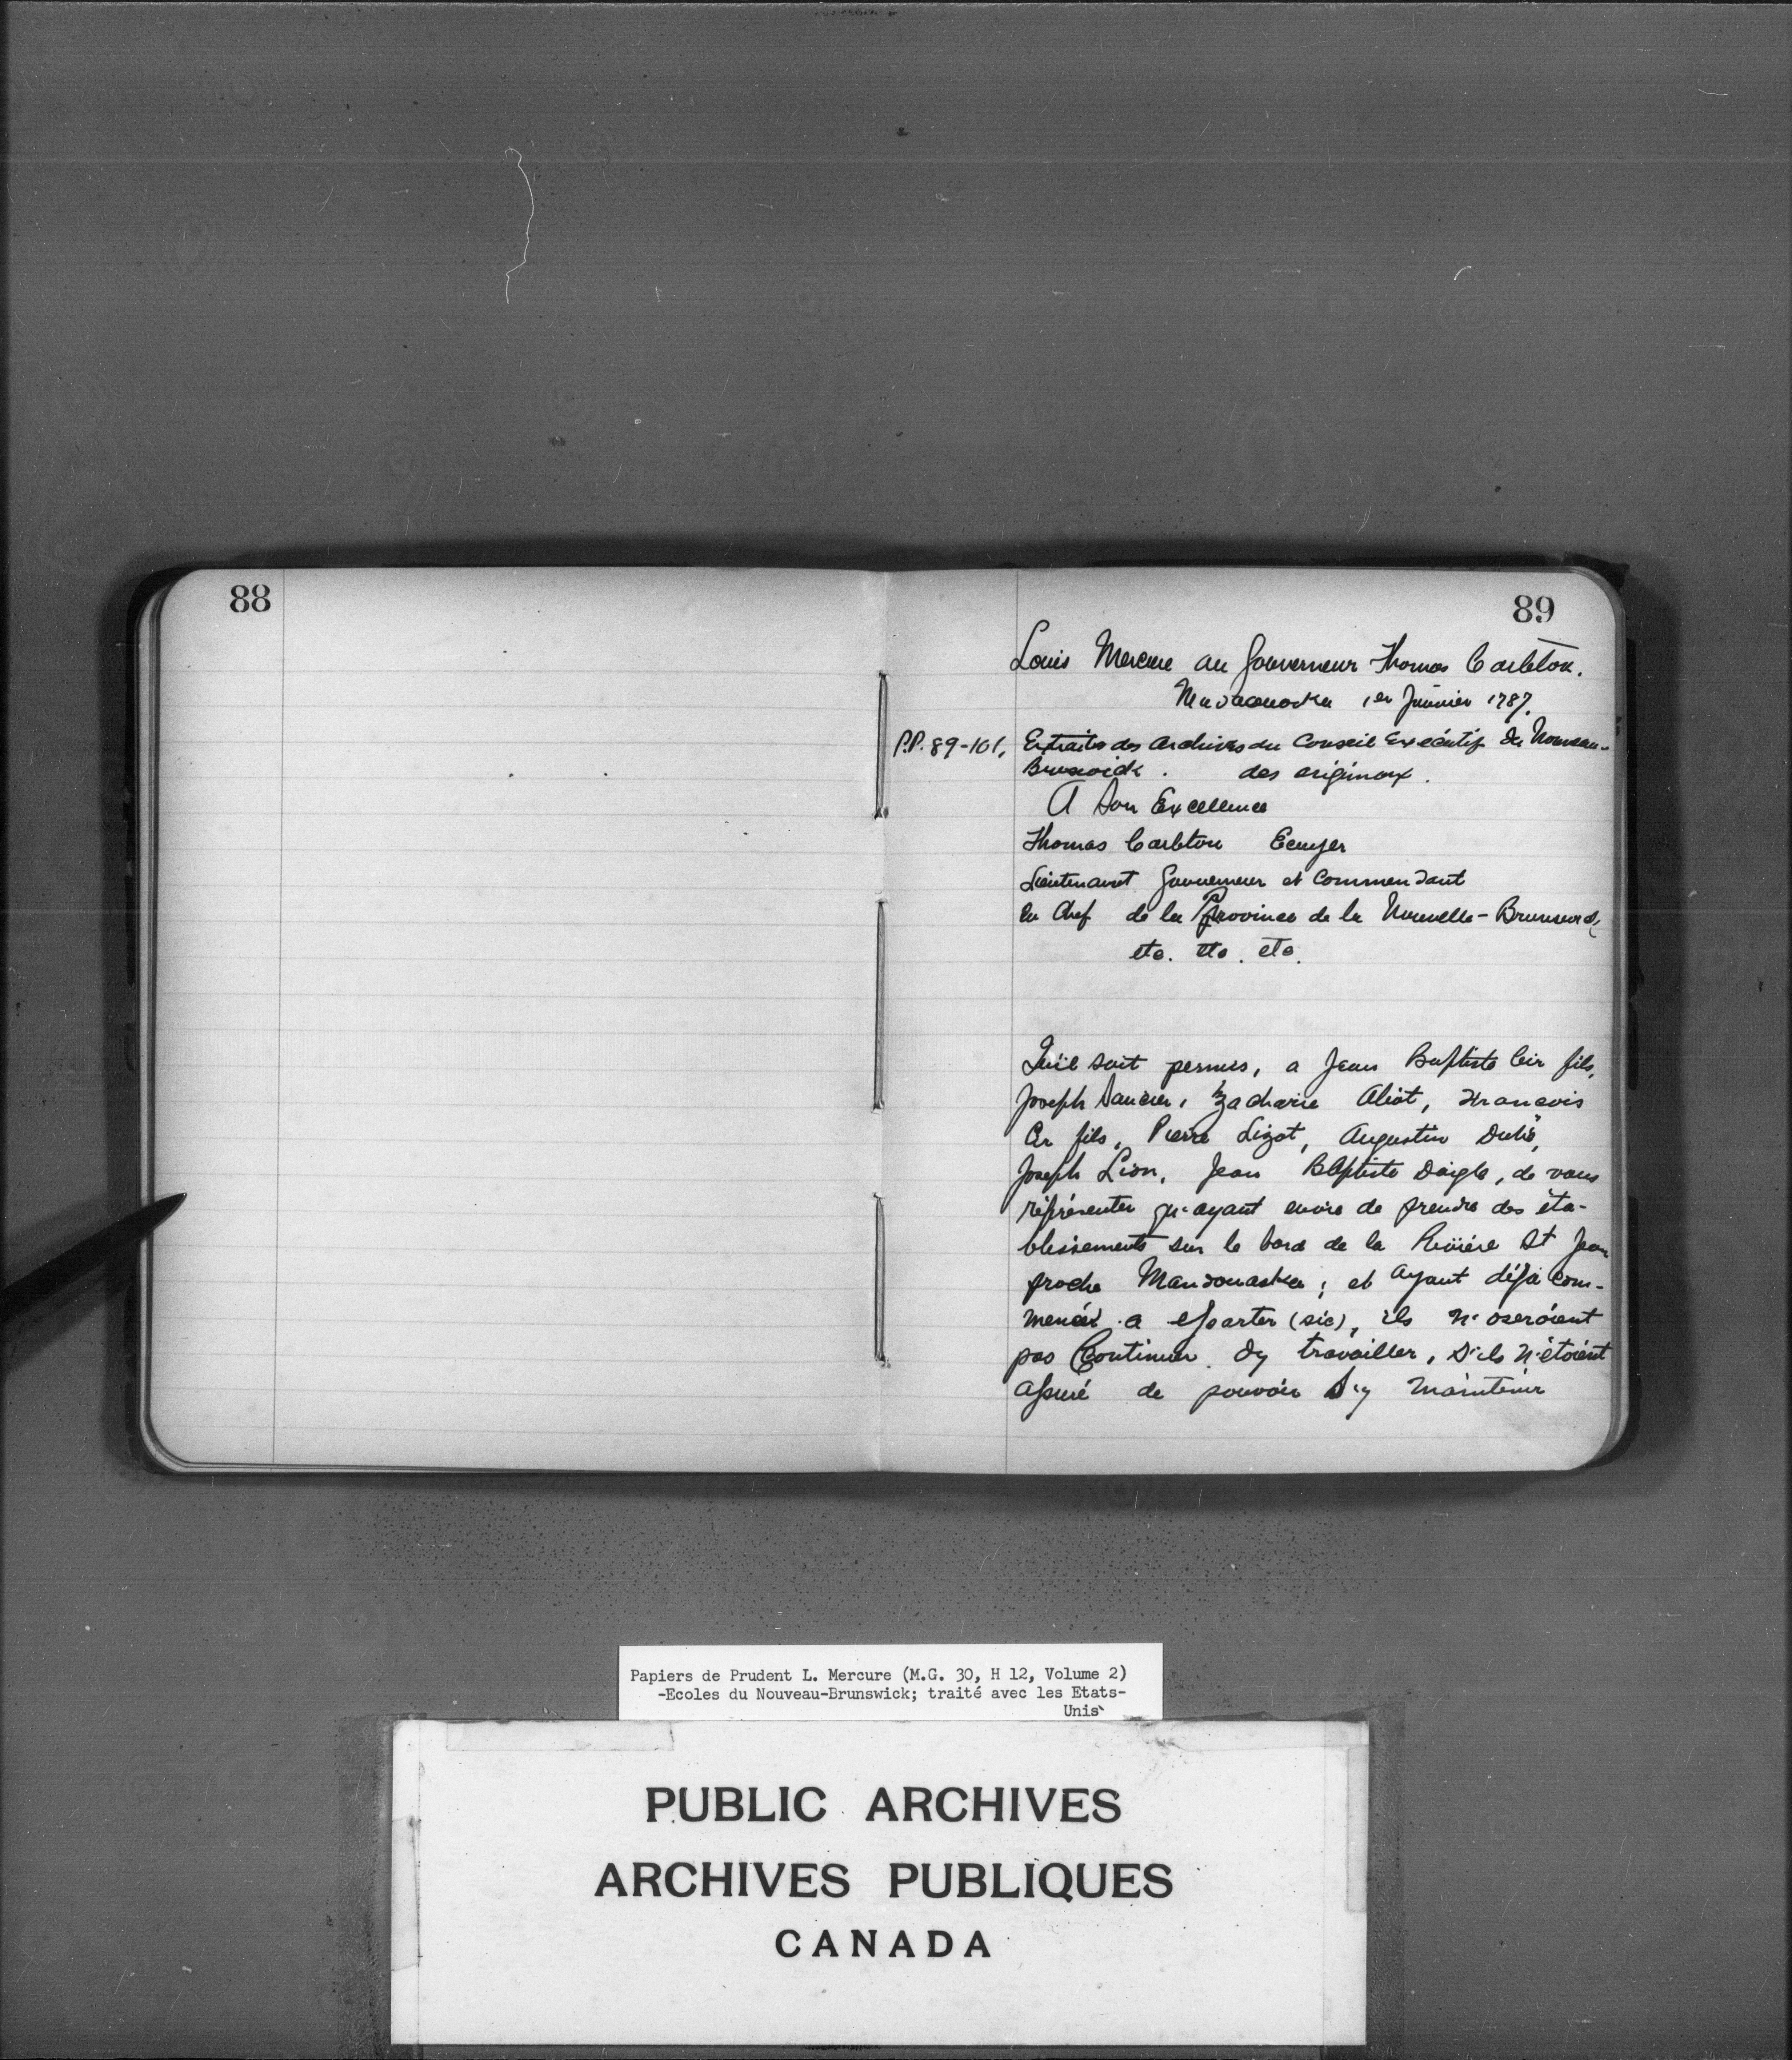 88
89
Louis Mercure au Gouverneur Thomas Carleton.
Madaouaska 1er Janvier 1787.
P.P. 89-101, Extraits des Archives du Conseil Exécutif du Nouveau-
Brunswick . des originaux .
A Son Excellence
Thomas Carleton Ecuyer
Lieutenant Gouverneur et Commendant
En Chef de la Province de la Nouvelle-Brunswick
etc. etc. etc.
Qu'il soit permis, a Jean Baptiste Cir fils,
Joseph Saucier, Zacharie Aliot, Francois
Cir fils, Pierre Lizot, Augustin Dubé,
Joseph Lion, Jean Baptiste Daigle, de vous
répresenter qu'ayant envie de prendre des éta-
blissements sur le bord de la Rivière St Jean
proche Mandouaska; et ayant déjà com-
mencé a essarter (sic), ils n'oseroient
pas Continuer dy travailler, S'ils N'étoient
assuré de pouvoir S'y maintenir
Papiers de Prudent L. Mercure (M.G. 30, H 12, Volume 2)
-Ecoles du Nouveau-Brunswick; traité avec les Etats-
Unis
PUBLIC ARCHIVES
ARCHIVES PUBLIQUES
CANADA